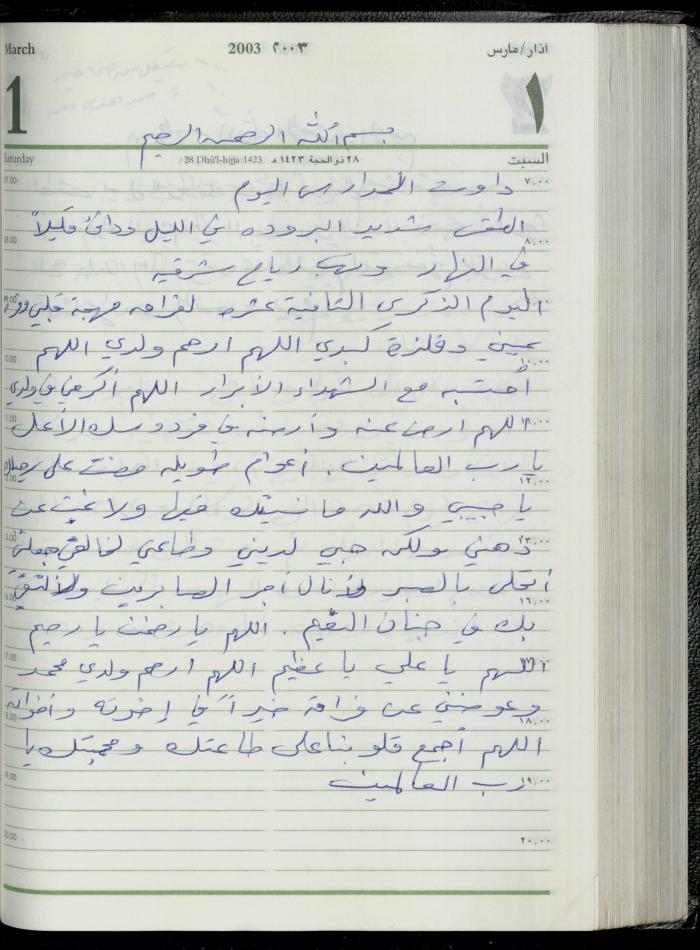 March 2003 ٢٠٠٣ آذار/مارس
1 ١
بسم الله الرحمن الرحيم
Saturday 28 Dhû'l-hijja 1423 ٢٨ ذو الحجة ١٤٢٣ هـ السبت
٧,٠٠ داومت المدارس اليوم 07.00
الطقس شديد البروده في الليل ودافئ قليلاً
٨,٠٠ 08.00
في النهار وتهب رياح شرقيه
اليوم الذكرى الثانية عشره لفراقه مهجة قلبي وقرة 09.00
عيني وفلذة كبدي اللهم ارحم ولدي اللهم
١٠,٠٠ 10.00
أحتسبه مع الشهداء الأبرار اللهم أكرمني في ولدي
١١,٠٠ اللهم ارض عنه وأرضه في فردوسك الأعلى 11.00
يا رب العالمين. أعوام طويله مضت على رحيلك
١٢,٠٠ 12.00
يا حبيبي والله ما نسيتك فيها ولا غبت عن
١٣,٠٠ ذهني ولكن حبي لديني وطاعتي لخالقي جعلتني 13.00
أتحلى بالصبر لأنال أجر الصابرين ولألتقي
١٦,٠٠ 16.00
بك في جنان النعيم. اللهم يا رحمن يا رحيم
١٧,٠٠ اللهم يا علي يا عظيم اللهم ارحم ولدي محمد 17.00
وعوضني عن فراقه خيراً في إخوته وأخواته
١٨,٠٠ 18.00
اللهم أجمع قلوبنا على طاعتك ومحبتك يا
١٩,٠٠ رب العالمين 19.00
٢٠,٠٠ 20.00